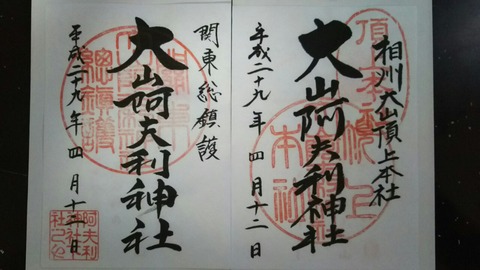 相州大山頂上本社
大山阿夫利神社
平成二十九年 四月十二日
関東総鎮護
大山阿夫利神社
平成二十九年 四月十二日